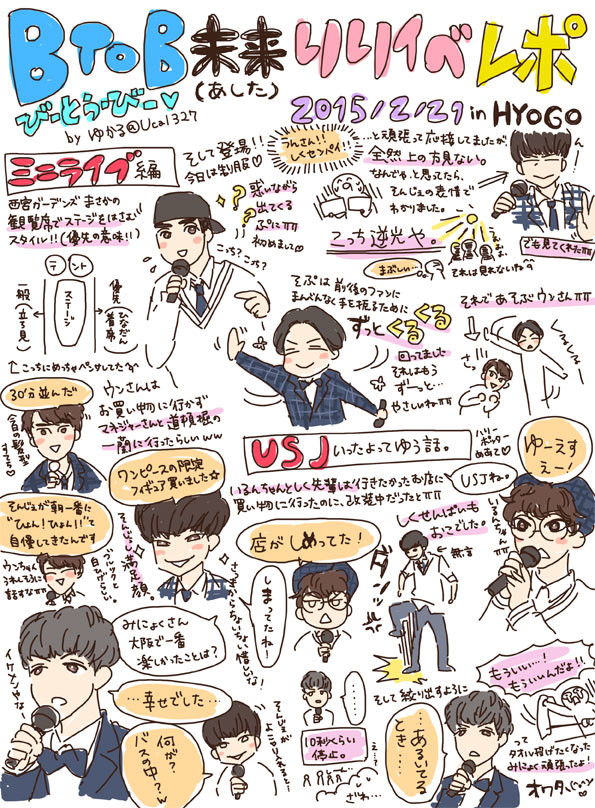 BToB 未来 リリイベ レポ
(あした)
びーとぅーびー♡
by ゆかる@Uca1327
2015/2/21 in HYOGO
ミニライブ編
西宮ガーデンズ まさかの
観覧席でステージをはさむ
スタイル!!(優先の意味!!)
テント
一般(立ち見)
ステージ
優先(着席)
ひなだん
↑こっちにめっちゃペンサしてたㅠㅠ
そして登場!!
今日は制服♡
惑いながら
出てくる
ぷにㅠㅠ
初めまして♡
こっち?こっち?
うんさん!!
しくせんぱい!!
…と頑張って応援してましたが
全然上の方見ない。
なんでや。と思ってたら、
そんじぇの表情で
わかりました。
こっち逆光や。
まぶしい…
てれは見れないねㅠ
でも見てくれたㅠㅠ
そぷは前後のファンに
まんべんなく手を振るために
ずっとくるくる
回ってました
それはもう
ずーっと…
やさしいねㅠㅠ
それであそぶウンさんㅠㅠ
さっ
30分並んだ
今日の髪型すてち♡
ウンさんは
お買い物に行かず
マネジャーさんと道頓堀の
一蘭に行ったらしいww
USJいったよってゆう話。
ハリーポッターめあて♡
ゆーえすえー!
USJね。
いるんちゃんとしく先輩は行きたかったお店に
買い物に行ったのに、改装中だったとㅠㅠ
ワンピースの限定
フィギュア買いました☆
そんじぇが朝一番に
"ひょん!ひょん!!"て
自慢してきたんです
ウンちゃん
うれしそうに
話すなㅠㅠ
そんじぇ満足顔。
店がしめってた!
しまってたね!
さっきからちょいちょい惜しいな!
しくせんぱいも
おこでした。
無言
みにょくさん
大阪で一番
楽しかったことは?
イケメンやな
…幸せでした…
何が?
バスの中?w
そんじぇが
……
10秒くらい
停止。
ざわ…
そして絞り出すように
…あるいてる
とき……
もういい…!
もういいんだよ!!
って
タオル投げたくなった
みにょく頑張ったよ!
オワタ\(^o^)/